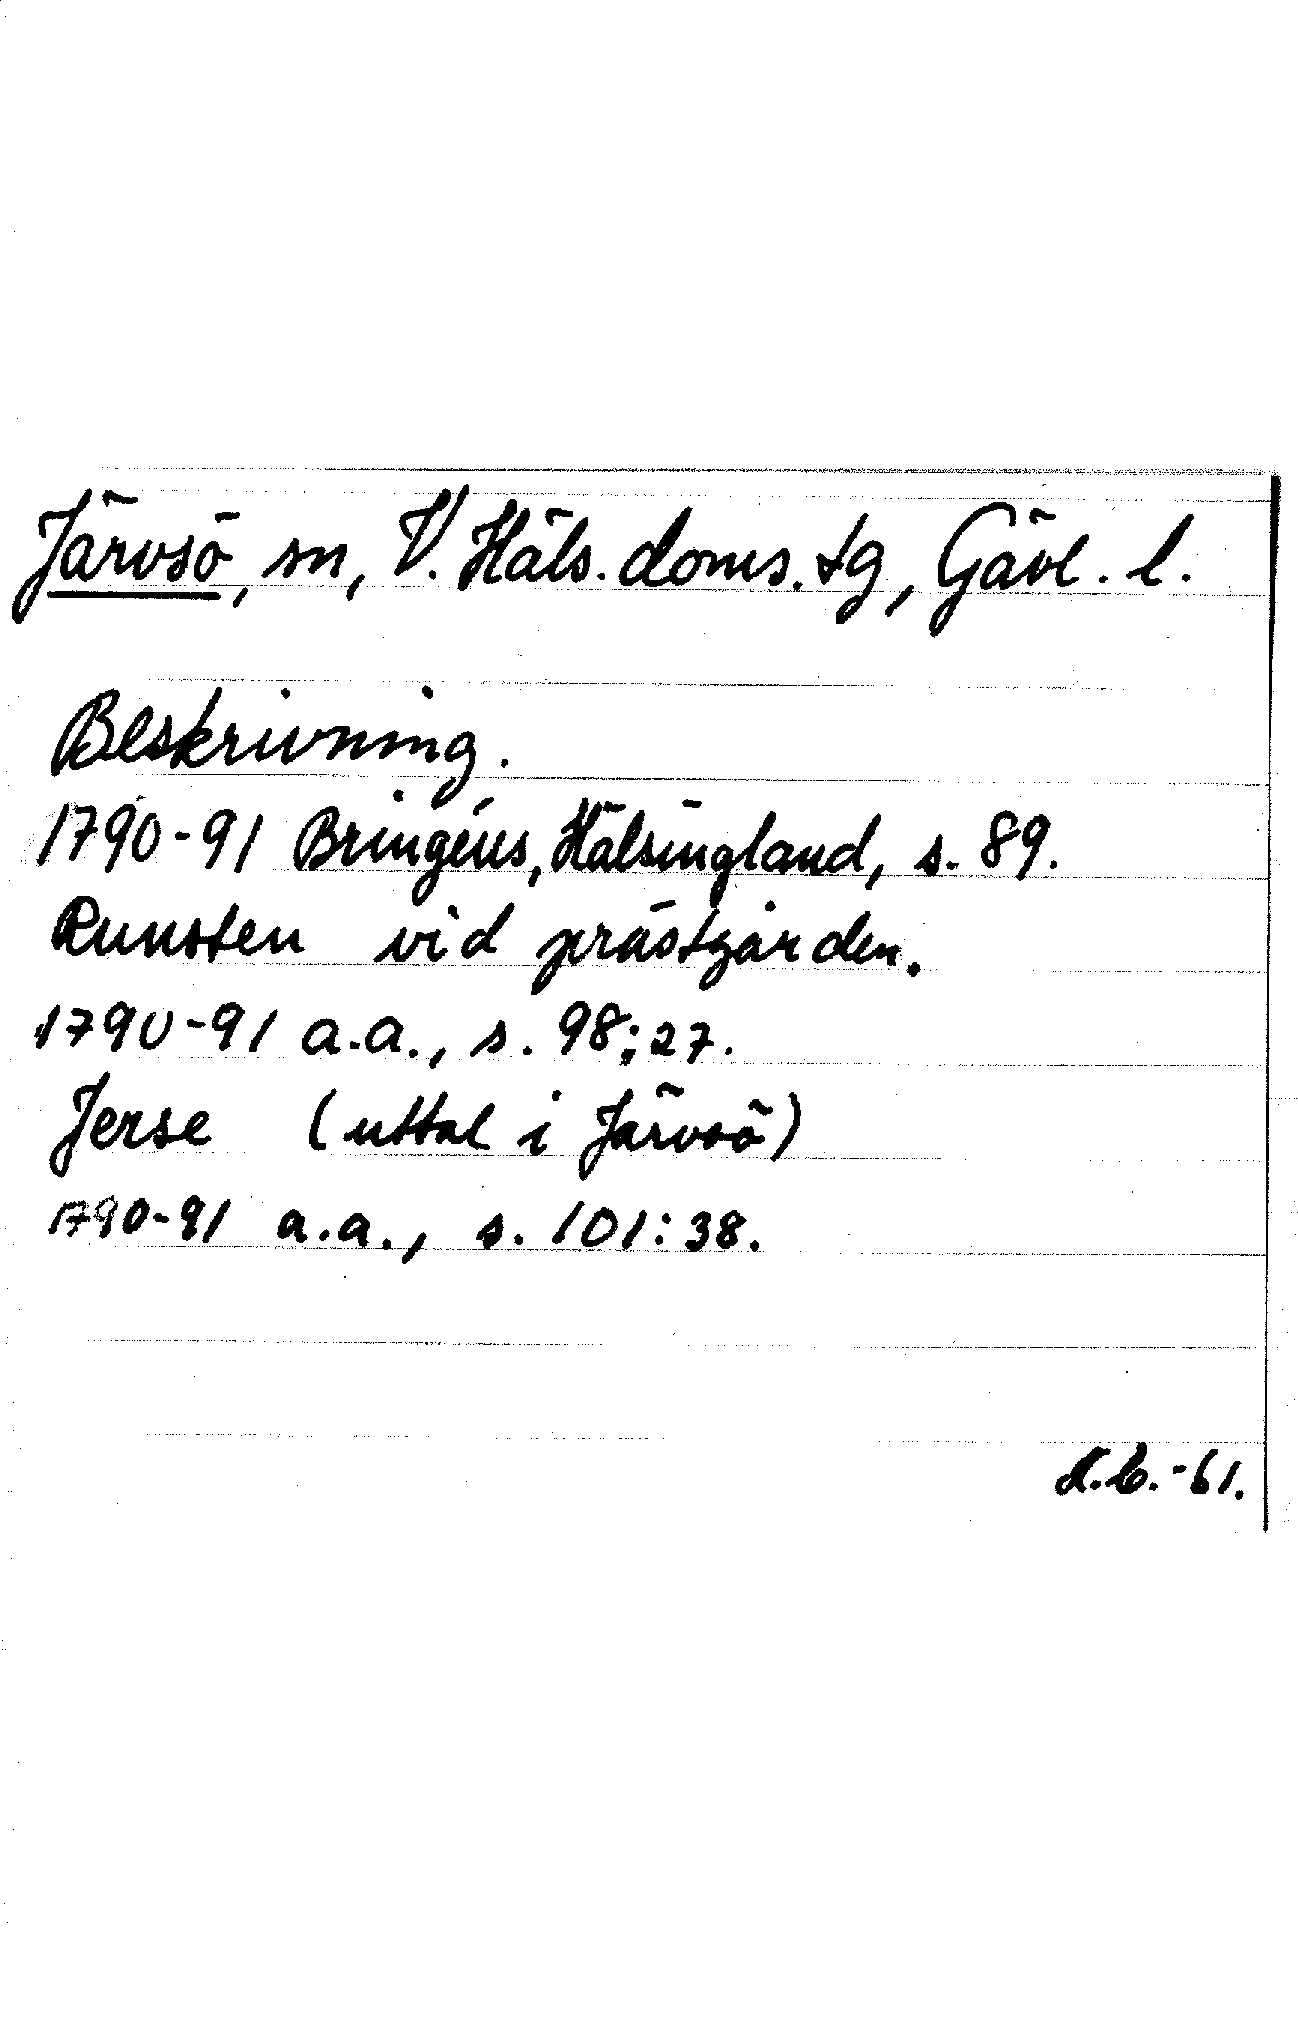 Järvsö, sn, V. Häls. doms. tg, Gävl. l.
Beskrivning.
1790-91 Bringéus, Hälsingland, s. 89.
Runsten vid prästgården.
1790-91 a.a., s. 98:27.
Jerse (uttal i Järvsö)
1790-91 a.a., s. 101:38.
-61.